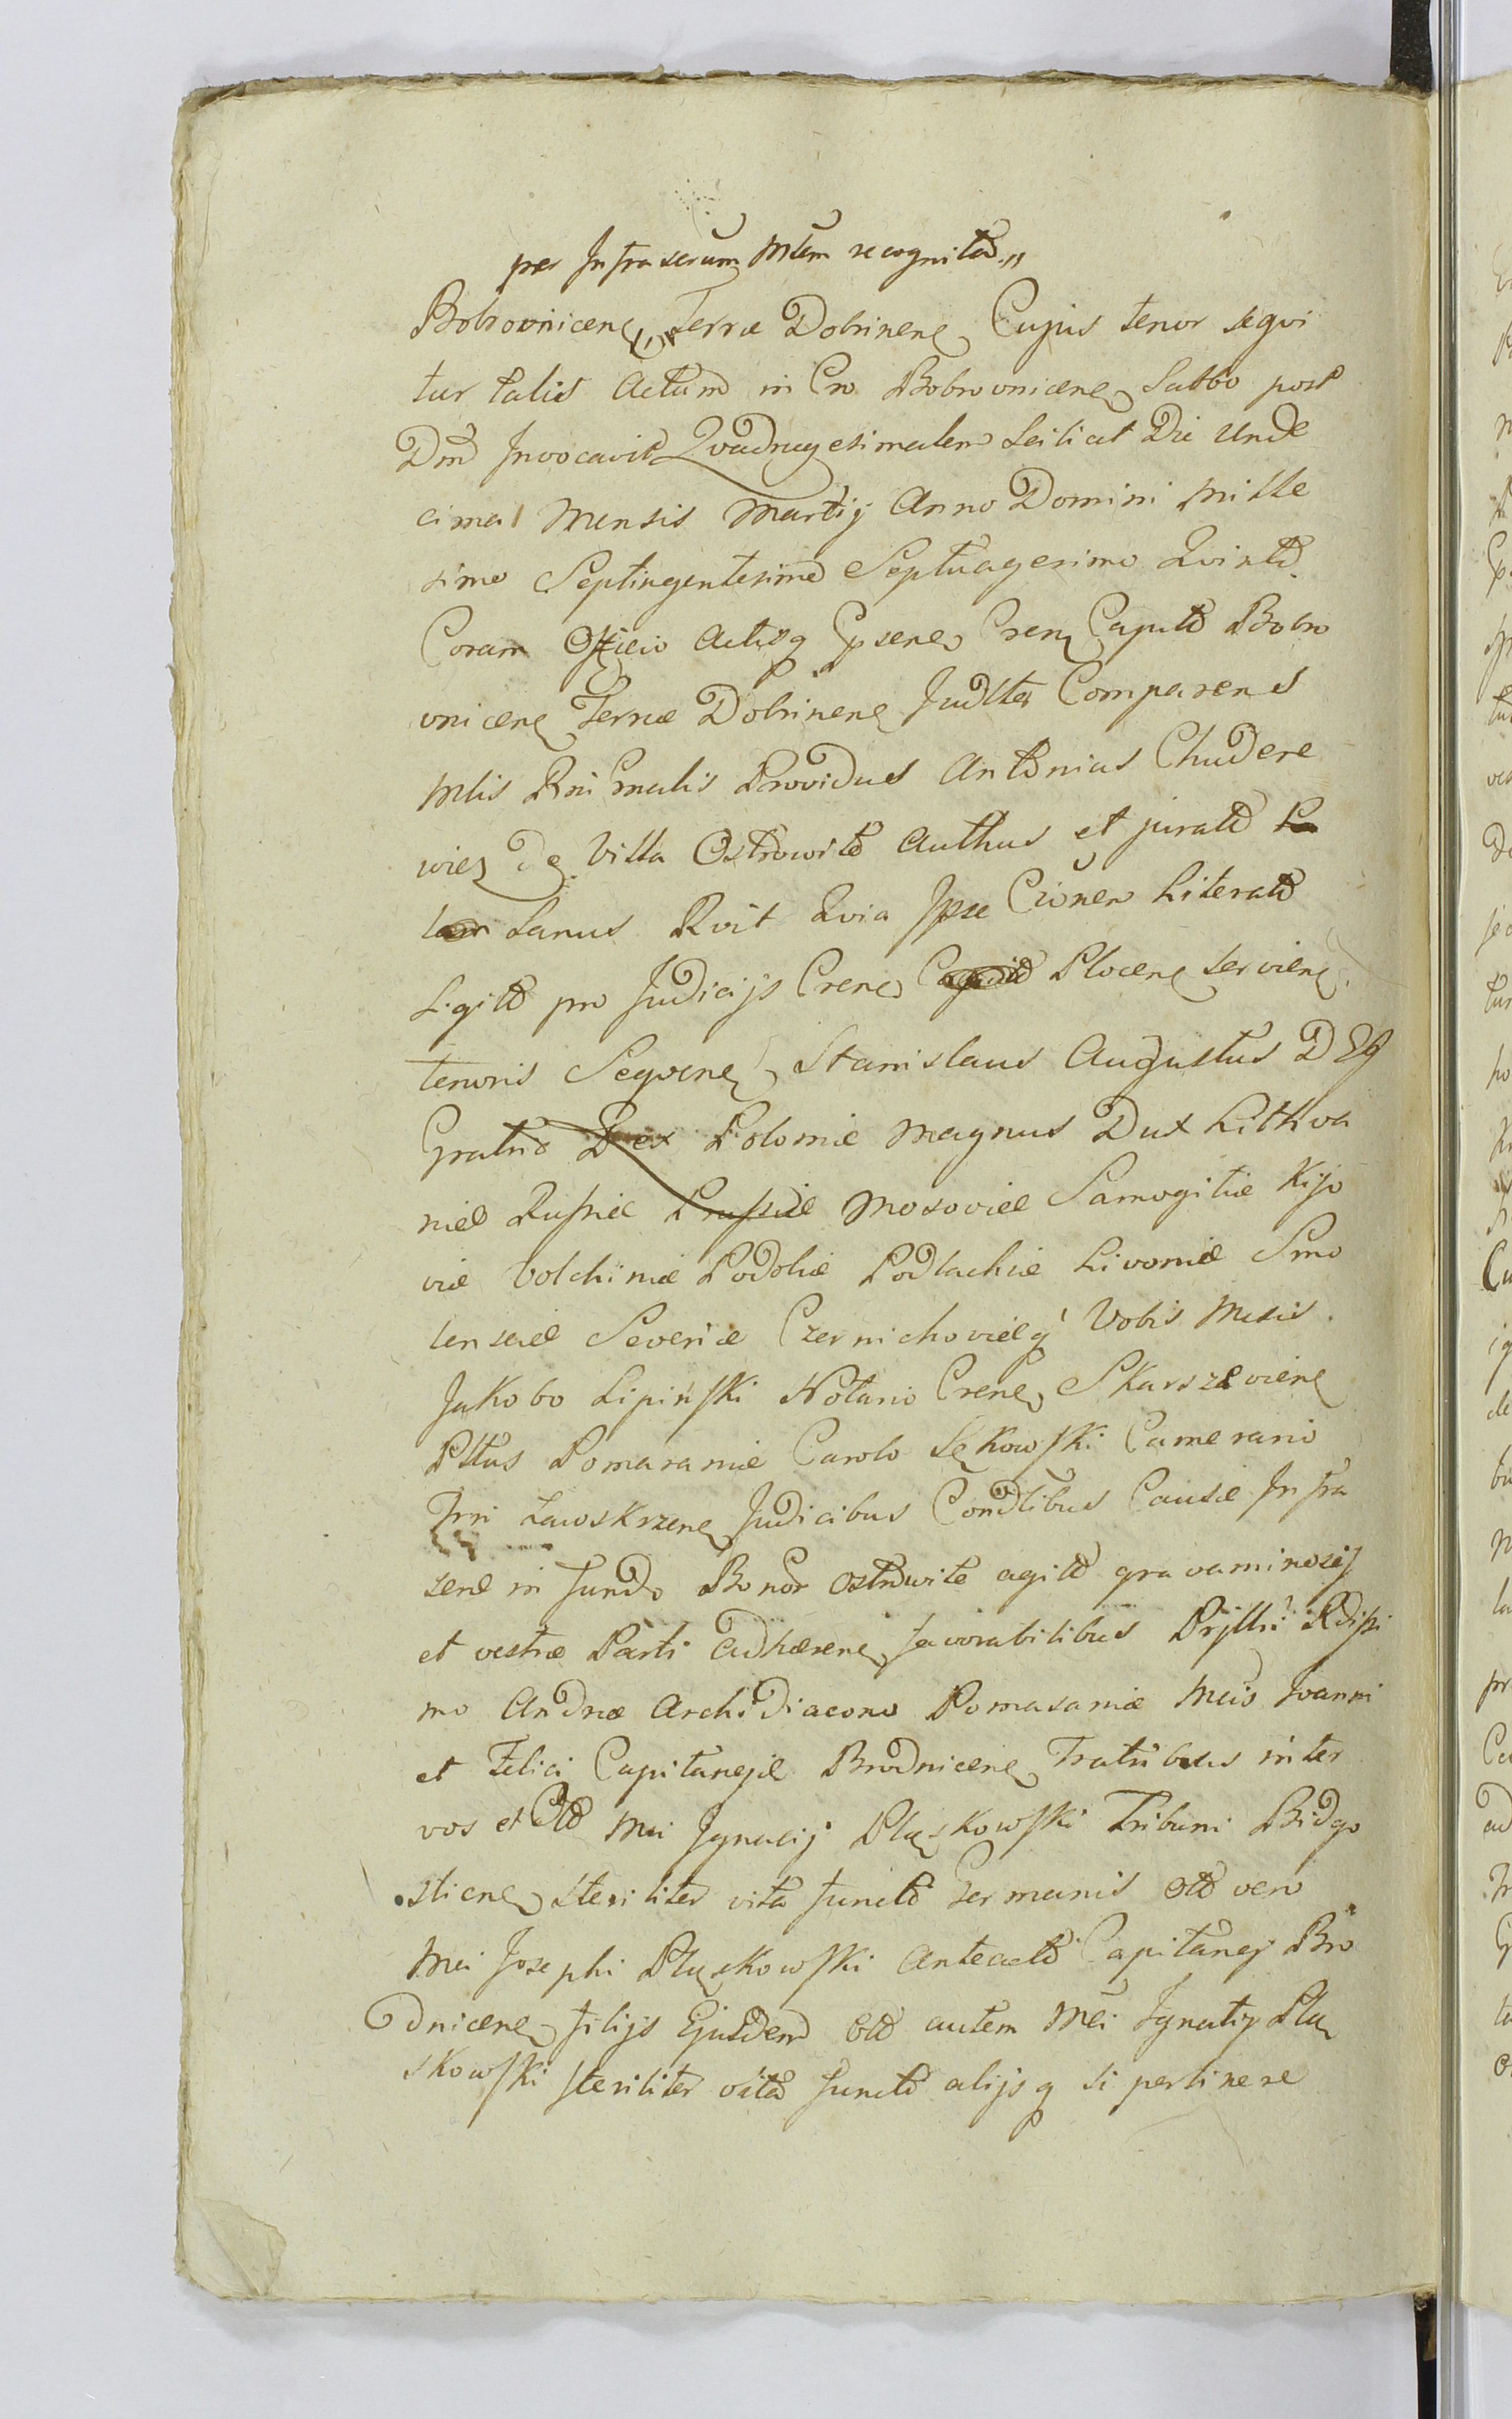 per Infrascrum Mlem recognitā „
Bobrovnicenę Terræ Dobrinenę Cujus tenor seqvi
tur talis Actum in Cro Bobrovnicenę Sabbo post
Dm̄ Invocavit Qvadragesimalem Scilicet Die Unde
cima Mensis Martij Anno Domini Mille
simo Septingentesimo Septuagesimo Qvinto
Coram Officio Actisq̨ Cren Capit Bobro
vnicenę Terræ Dobrinenę Judlter Comparens
Mlis Rni Gnalis Providus Antonius Chudere
wicz de Villa Ostrowite Authus et jurat
Sanus Rvit Qvia Ipse Cionem Literat
Ligit pro Judicijs Crenę Plocenę servienę
tenoris Seqvenę Stanislaus Augustus DEI
Gratia Rex Poloniæ Magnus Dux Lithva
niæ Russiæ Prussiæ Mosoviæ Samogitiæ Kijo
viæ Volchiniæ Podoliæ Podlachiæ Livoniæ Smo
lensciæ Severiæ Czernichoviæq̨ Vobis Mcis
Jakobo Lipiński Notario Crenę Skarszevienę
Pttus Pomaraniæ Carolo Sękowski Camerario
Trri Zawskrzenę Judicibus Condlibus Causæ Infra
scnæ in fundo Bonor Ostrowite agit gravaminosij
et vestræ Parti adhærenę favorabilibus Prjllri Rdissi
mo Andræ Archidiacono Pomasaniæ Mcis Joanni
et Felici Capitanejæ Brodnicenę Fratribus inter
vos et Otō Mci Ignacij Pląskowski Tribuni Bidgo
stienę steriliter vita functo Germanis Otō vero
Mci Josephi Pląskowski Anteacto Capitanej Bro
dnicenę filijs Ejusdem Otō autem Mci Ignatij Plą
skowski steriliter vita functo alijsq̨ si pertinere